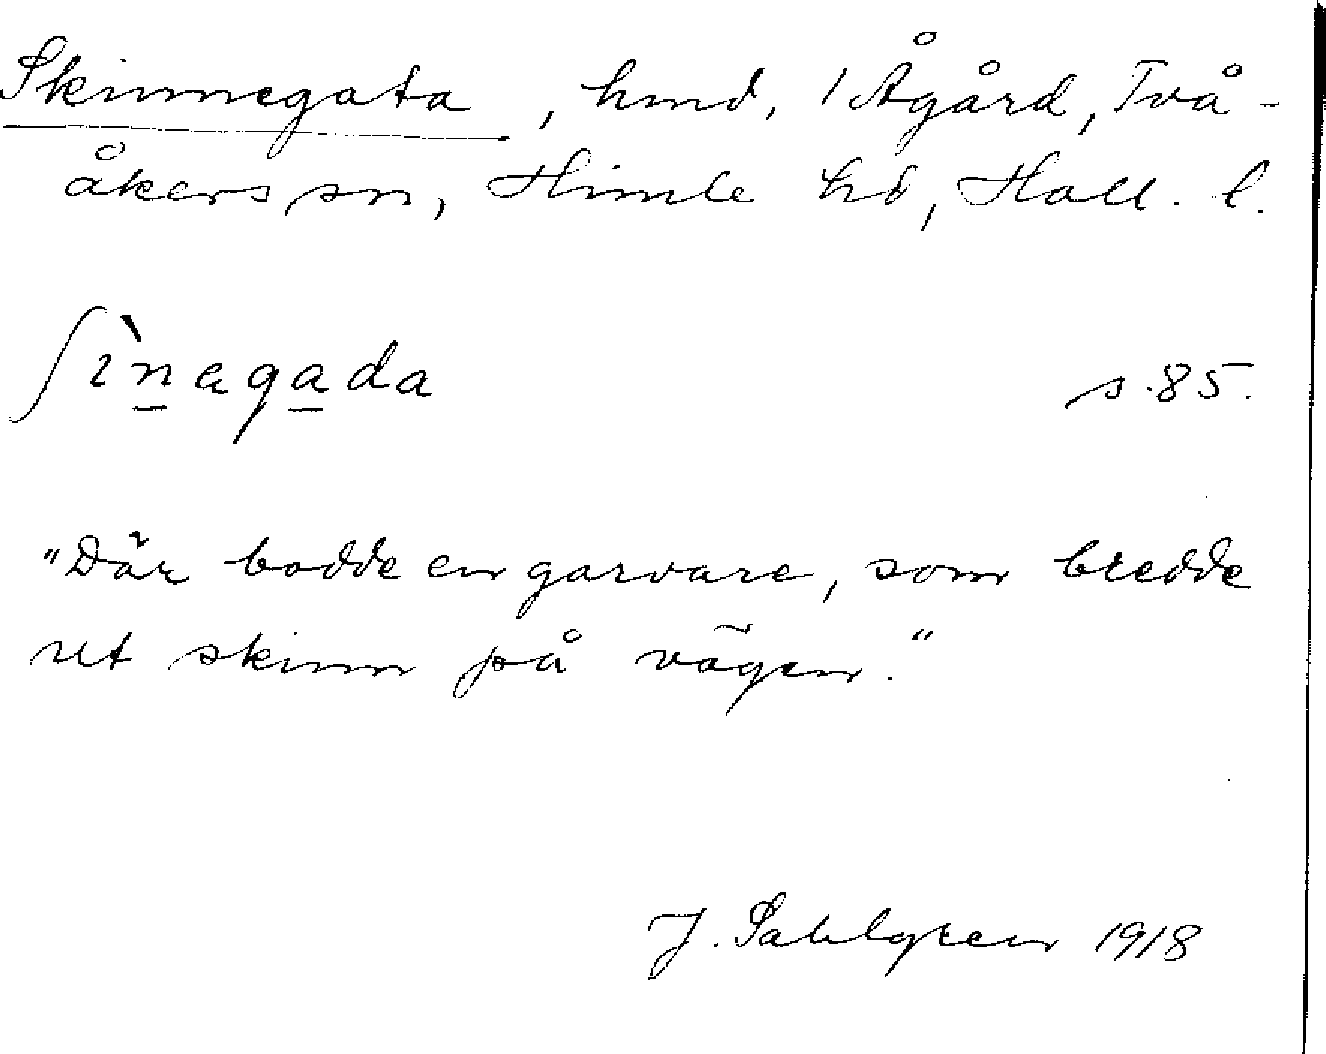 Skinnegata, hmd, 1 Ågård, Två-
åkers sn, Himle hd, Hall. l.
ʃɩ̀n̲aga̲da s. 85.
"Där bodde en garvare, som bredde
ut skinn på vägen."
J. Sahlgren 1918